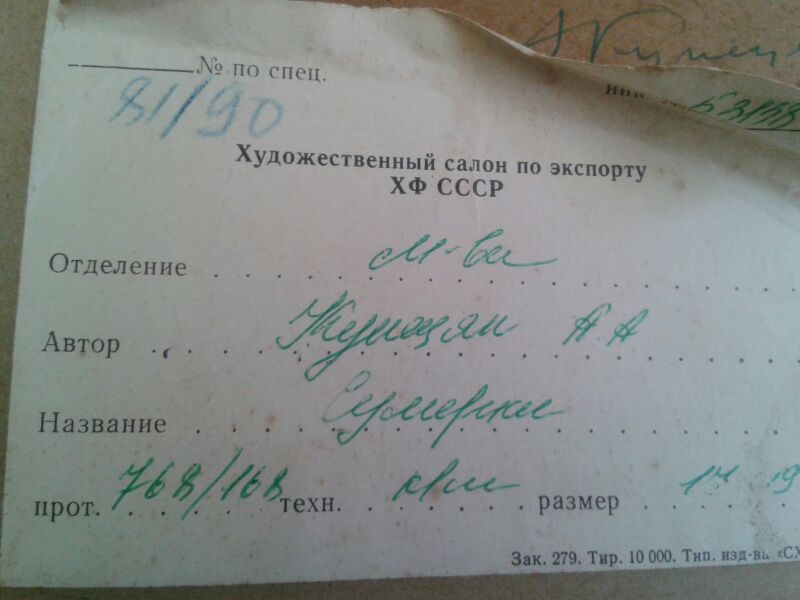 № по спец.
81/90
инв. 53138
Художественный салон по экспорту
ХФ СССР
Отделение м-ва
Автор А А
Название Сумерки
прот. 768/168 техн. размер 14 19
Зак. 279. Тир. 10 000. Тип. изд-ва «СХ